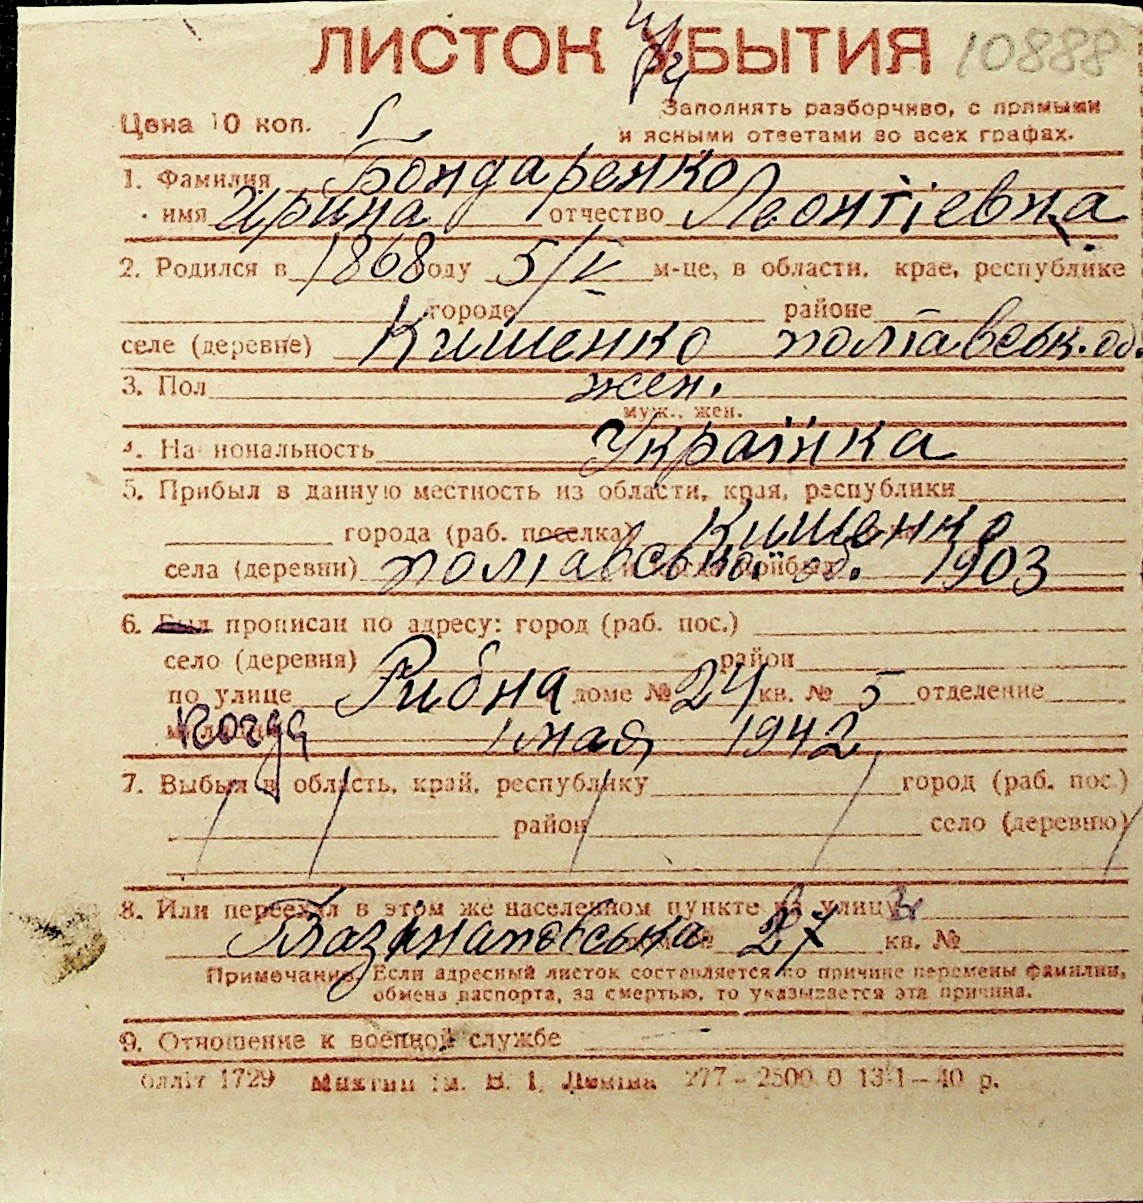 ЛИСТОК УБЫТИЯ 10888
Цена 10 коп.
Заполнять разборчиво, с прямыми
и ясными ответами во всех графах.
1. Фамилия Бондаренко
имя Ирина отчество Леонтіевна
2. Родился в 1868 году 5/V м-це, в области, крае, республике
городе районе
селе (деревне) Кишенко полтавськ. об.
3. Пол жен.
муж., жен.
4. Национальность Українка
5. Прибыл в данную местность из области, края, республики
города (раб. поселка) Кишенко
села (деревни) полтавської об. 1903
6. Был прописан по адресу: город (раб. пос.)
село (деревня) район
по улице Рибна доме № 24 кв. № 5 отделение
когда 1 мая 1942
7. Выбыл в область, край, республику город (раб. пос.)
район село (деревню)
8. Или переехал в этом же населенном пункте на улицу
27 кв. №
Примечание. Если адресный листок составляется по причине перемены фамилии,
обмена паспорта, за смертью, то указывается эта причина.
9. Отношение к военной службе
блліт 1729 ім. В. І. Леніна 277 – 2500 0 13-1 – 40 р.